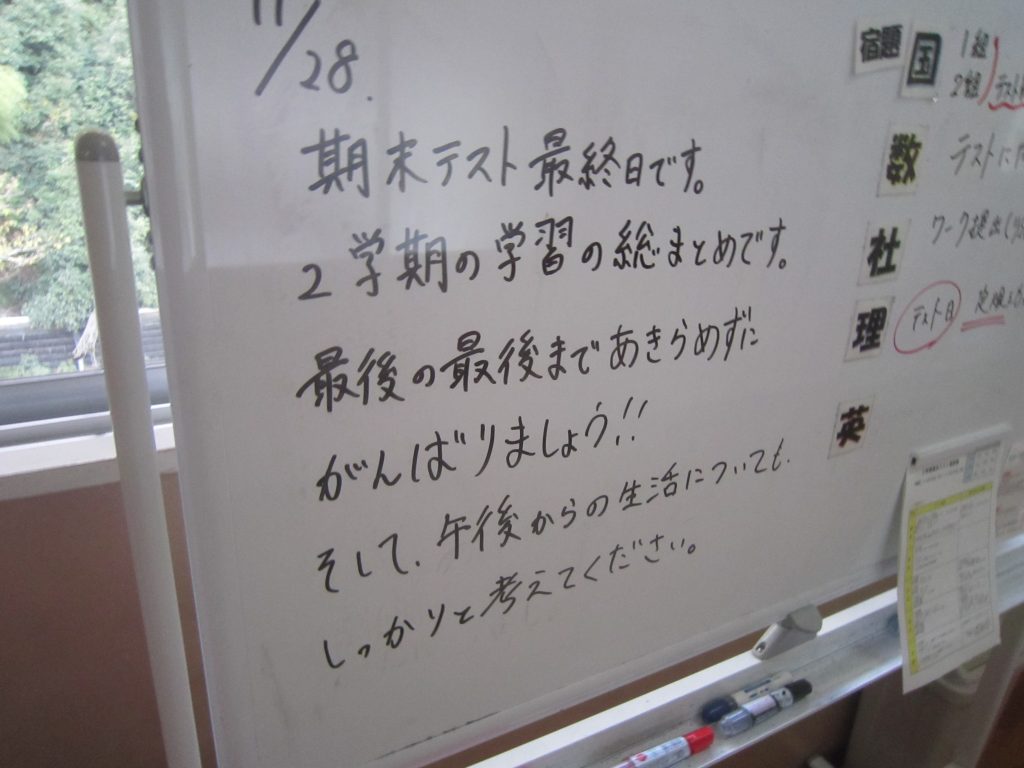 11/28.
期末テスト最終日です。
2学期の学習の総まとめです。
最後の最後まであきらめずに
がんばりましょう!!
そして、午後からの生活についても、
しっかりと考えてください。
宿題
国
1組
2組
数
テストに
社
ワーク提出
理
テスト日
英